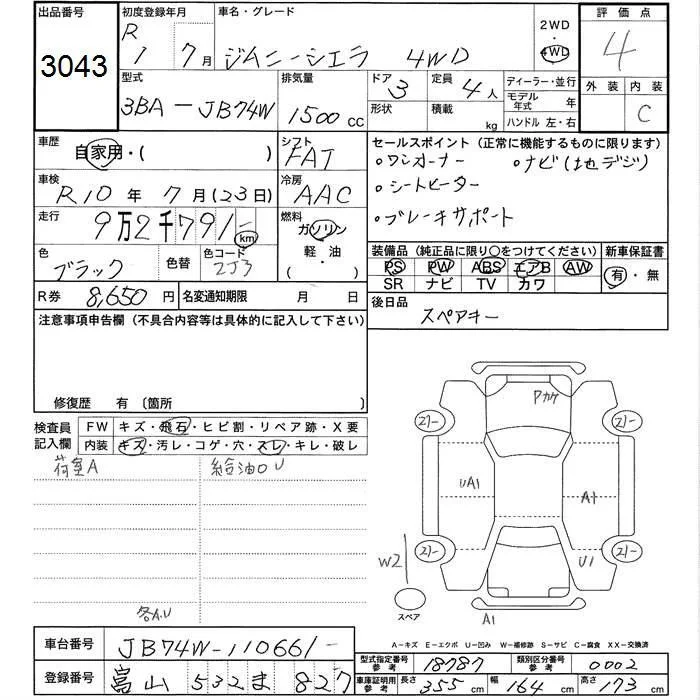 出品番号 3043
初度登録年月 R 1 7月
車名・グレード ジムニーシエラ 4WD
2WD 4WD
評価点 4
外装 内装 C
型式 3BA-JB74W
排気量 1500 CC
ドア 3
形状
定員 4人
積載 kg
ディーラー・並行
モデル年式 年
ハンドル 左・右
車歴 自家用・( )
シフト FAT
車検 R10年 7月(23日)
冷房 AAC
走行 9万2千791- km
燃料 ガソリン 軽油 ( ・ )
色 ブラック 色替 色コード ZJ3
R券 8,650円 名変通知期限 月 日
セールスポイント (正常に機能するものに限ります)
・ワンオーナー ・ナビ(地デジ)
・シートヒーター
・ブレーキサポート
装備品 (純正品に限り○をつけてください) 新車保証書
PS PW ABS エアB AW 有・無
SR ナビ TV カワ
後日品 スペアキー
注意事項申告欄 (不具合内容等は具体的に記入して下さい)
修復歴 有 (箇所
検査員記入欄
FW キズ・飛石・ヒビ割・リペア跡・X要
内装 キズ・汚レ・コゲ・穴・スレ・キレ・破レ
荷室A 給油口U
各A.U
Pカケ
21- 21-
UA1 A1
21- 21-
W2 U1
スペア A1
A-キズ E-エクボ U-凹み W-補修跡 S-サビ C-腐食 XX-交換済
車台番号 JB74W-110661-
登録番号 富山 532 ま 827
型式指定番号 参考 18787 類別区分番号 参考 0002
車庫証明用 参考 長さ 355 cm 幅 164 cm 高さ 173 cm